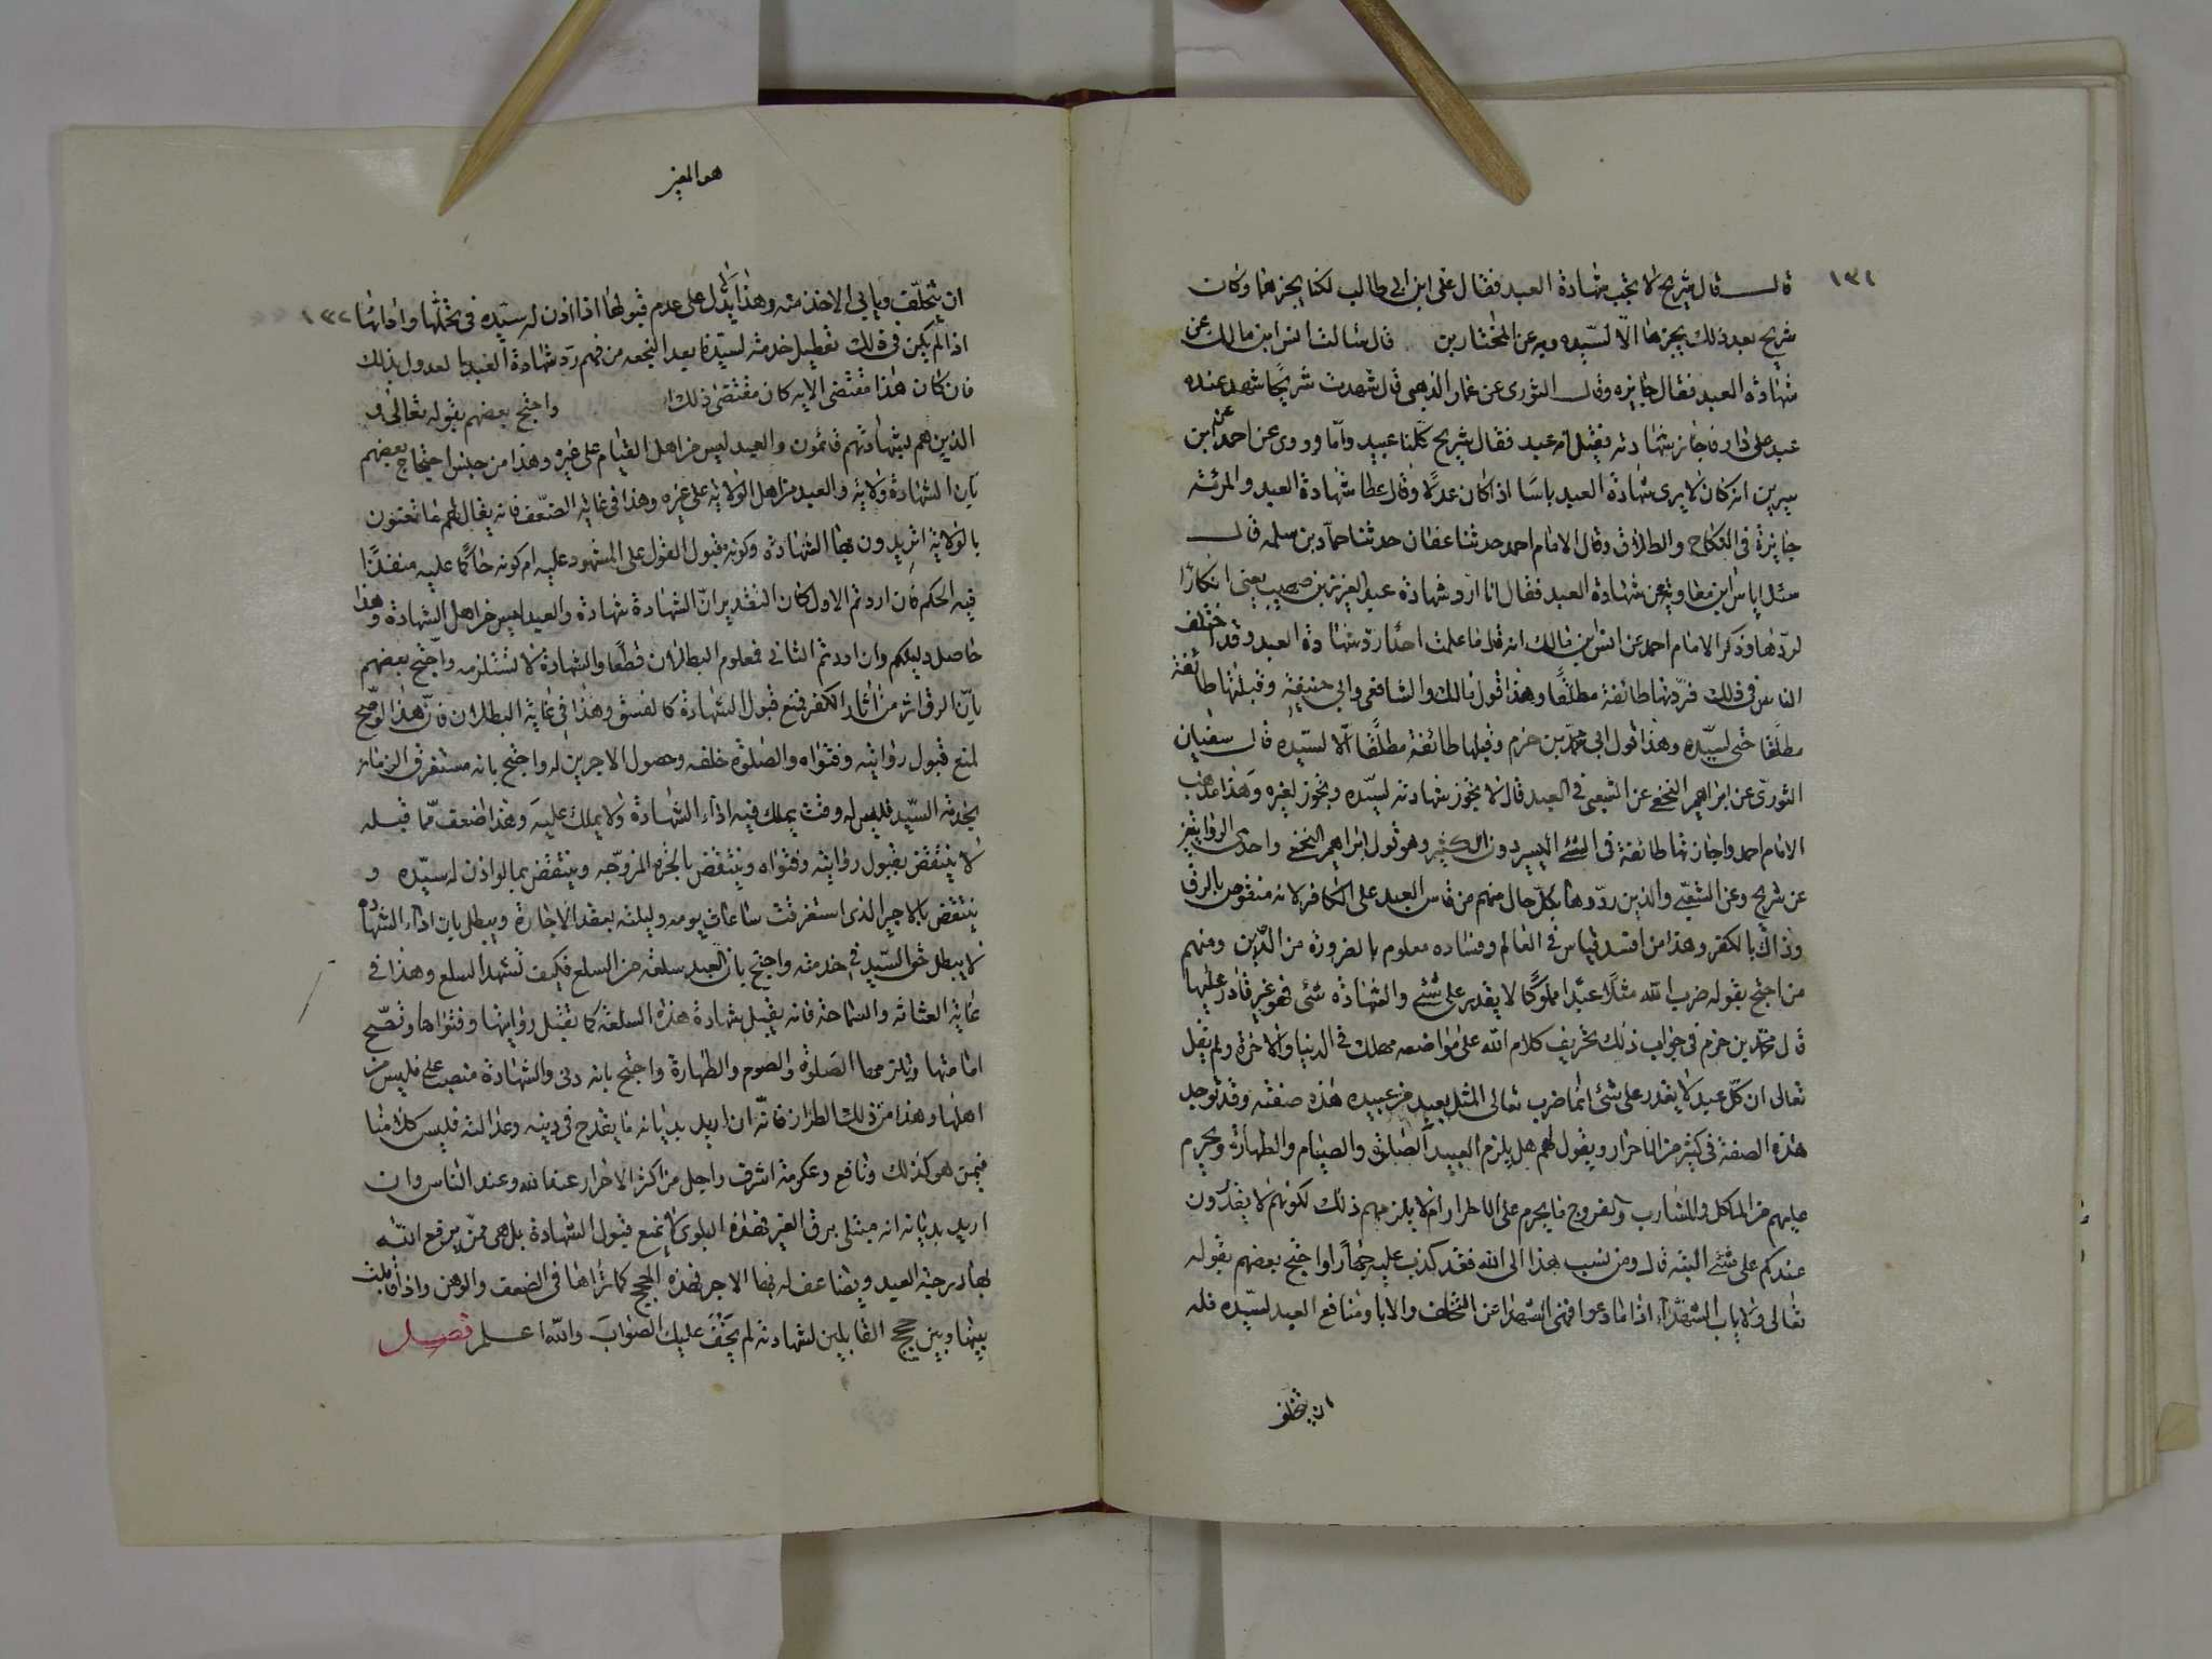 ١٣١
قال قال شريح لا يجب شهادة العبد فقال على ابن ابى طالب لكنا يجزها وكان
شريح بعد ذلك يجزها الا لسيده وبه عن المختار بن قال سالت انس ابن مالك عن
شهادة العبد فقال جايزه وقال الثورى عن عمار الذهبى قال شهدت شريحا شهد عنده
عبد على دار فاجاز شهادته فقيل انه عبد فقال شريح كلنا عبيد وآما وروى عن احمد عن ابن
سيرين انه كان لا يرى شهادة العبد باسا اذا كان عدلا وقال عطا شهادة العبد والمرئة
جايزة فى النكاح والطلاق وقال الامام احمد حدثنا عفان حدثنا حماد بن سلمه قال
سئل اياس ابن معاوية عن شهادة العبد فقال انا ارد شهادة عبد العزيز بن صهيب يعنى انكارا
لردها وذكر الامام احمد عن انس ابن مالك انه قال ما علمت احدا رد شهادة العبد وقد اختلف
الناس فى ذلك فردتها طائفة مطلقا وهذا قول مالك والشافعى وابى حنيفة وقبلتها طائفة
مطلقا حتى لسيده وهذا قول ابى محمد بن حزم وقبلها طائفة مطلقا الا لسيده قال سفيان
الثورى عن ابراهيم النخعى عن الشعبى فى العبد قال لا يجوز شهادته لسيده ويجوز لغيره وهذا مذهب
الامام احمد واجازتها طائفة فى الشئ اليسير دون الكثير وهو قول ابراهيم النخعى واحدى الروايتين
عن شريح وعن الشعبى والذين ردوها بكل حال منهم من قاس العبد على الكافر لانه منقوص بالرق
وذاك بالكفر وهذا من افسد قياس فى العالم وفساده معلوم بالضرورة من الدين ومنهم
من احتج بقوله ضرب الله مثلا عبدا مملوكا لا يقدر على شئ والشهادة شئ فهو غير قادر عليها
قال محمد بن حزم فى جواب ذلك تحريف كلام الله على مواضعه مهلك فى الدنيا والاخرة ولم يقل
تعالى ان كل عبد لا يقدر على شئ انما ضرب تعالى المثل بعبد من عبيده هذه صفته وقد توجد
هذه الصفة فى كثير من الاحرار ويقول لهم هل يلزم العبيد الصلوة والصيام والطهارة ويحرم
عليهم من المآكل والمشارب والفروج ما يحرم على الاحرار ام لا يلزمهم ذلك لكونهم لا يقدرون
عندكم على شئ البته قال ومن نسب هذا الى الله فقد كذب عليه جهارا واحتج بعضهم بقوله
تعالى ولا ياب الشهداء اذا ما دعوا فنهى الشهدا عن التخلف والابا ومنافع العبد لسيده فله
ان يتخلف
هو المعز
١٣٢
ان يتخلف ويابى الا خدمته وهذا يدل على عدم قبولها اذا اذن له سيده فى تحملها وادائها
اذا لم يكن فى ذلك تعطيل خدمته لسيده من فهم رد شهادة العبد العدول بذلك
فان كان هذا مقتضى الايه كان مقتضى ذلك واحتج بعضهم بقوله تعالى و
الذين هم بشهاداتهم قائمون والعبد ليس من اهل القيام على غيره وهذا من جنس احتجاج بعضهم
بان الشهادة ولاية والعبد من اهل الولاية على غيره وهذا فى غاية الضعف فانه يقال لهم ما تعنون
بالولاية اتريدون بها الشهادة وكونه مقبول القول على المشهود عليه ام كونه حاكما عليه منفذا
فيه الحكم فان اردتم الاول كان التقدير ان الشهادة شهادة والعبد ليس من اهل الشهادة وهذا
حاصل دليلكم وان اردتم الثانى فمعلوم البطلان قطعا والشهادة لا تستلزمه واحتج بعضهم
بان الرق اثر من آثار الكفر فمنع قبول الشهادة كالفسق وهذا فى غاية البطلان فان هذا لو صح
لمنع قبول روايته وفتواه والصلوة خلفه وحصول الاجرين له واحتج بانه مستغرق الزمان
بخدمة السيد فليس له وقت يملك فيه اداء الشهادة ولا يملك عليه وهذا اضعف مما قبله
لا ينتقض بقبول روايته وفتواه وينتقض بالحرة المزوجه وينتقض بما لو اذن له سيده و
ينتقض بالاجير الذى استغرقت ساعات يومه وليلته بعقد الاجارة ويبطل بان اداء الشهادة
لا يبطل حق السيد فى خدمته واحتج بان العبد سلعة من السلع فكيف تشهد السلع وهذا فى
غاية الغثاثة والسماحة فانه يقبل شهادة هذه السلعة كما تقبل روايتها وفتواها وتصح
امامتها وتلزمها الصلوة والصوم والطهارة واحتج بانه دنى والشهادة منصب على فليس من
اهلها وهذا من ذلك الطراز فانه ان اريد بدنيانه ما يقدح فى دينه وعدالته فليس كلامنا
فيمن هو كذلك ونافع وعكرمة اشرف واجل من اكثر الاحرار عند الله وعند الناس وان
اريد بدنيانه انه مبتلى برق الغير فهذه البلوى لا تمنع قبول الشهادة بل هى ممن يرفع الله
بها درجة العبد ويضاعف له بها الاجر فهذه الحجج كما تراها فى الضعف والوهن واذا قابلت
بينها وبين حجج القابلين لشهادته لم يخف عليك الصواب والله اعلم فصل